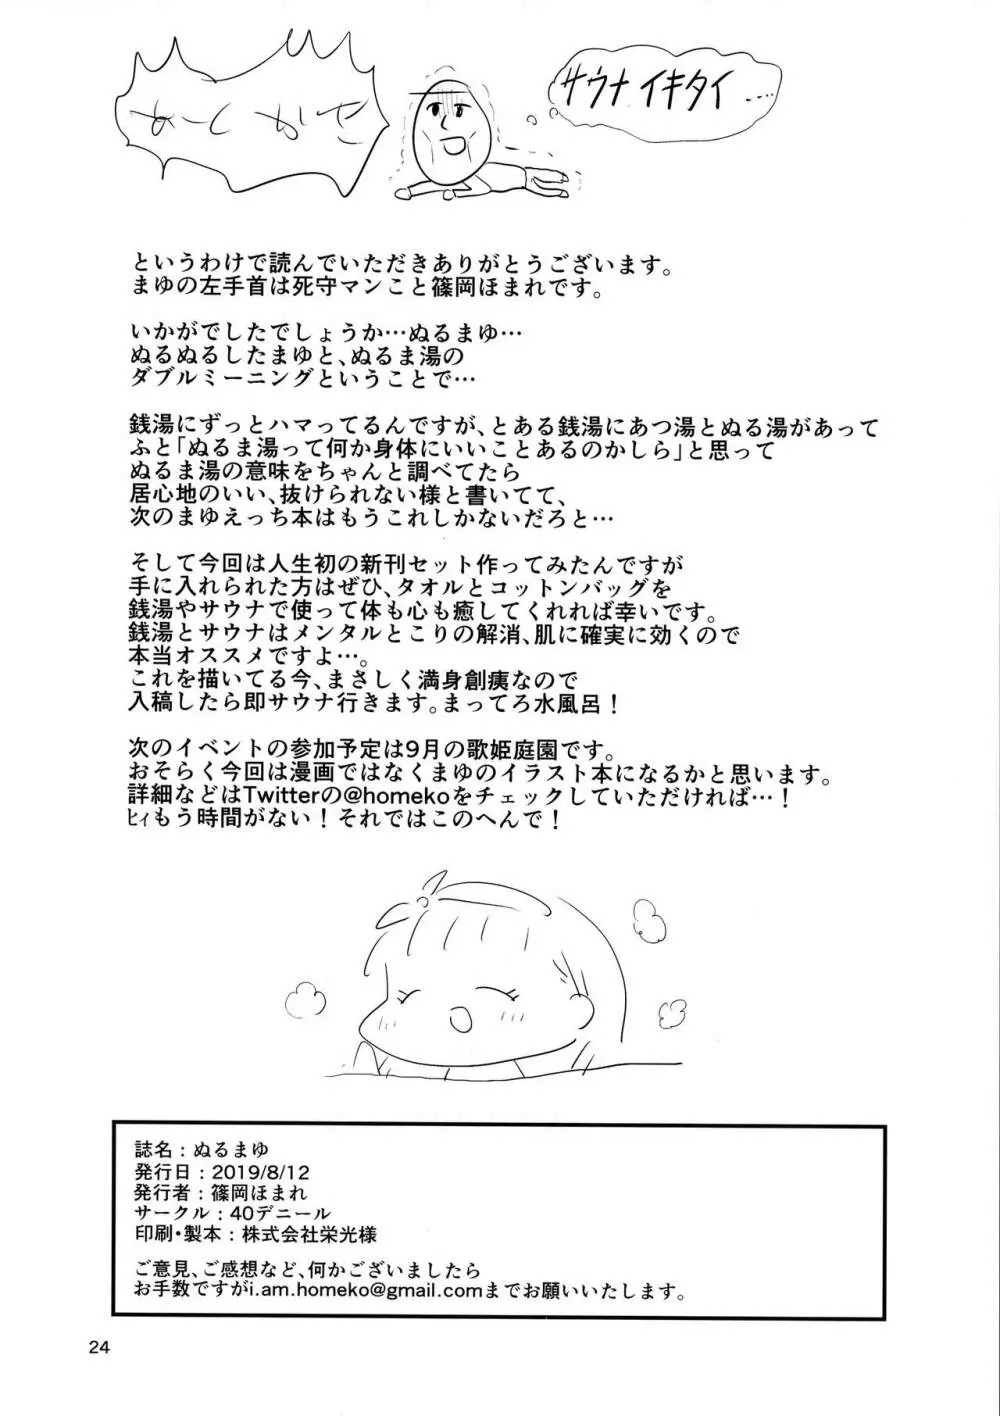 あとがき
サウナイキタイ....
というわけで読んでいただきありがとうございます。
まゆの左手首は死守マンこと篠岡ほまれです。
いかがでしたでしょうか…ぬるまゆ…
ぬるぬるしたまゆと、ぬるま湯の
ダブルミーニングということで…
銭湯にずっとハマってるんですが、とある銭湯にあつ湯とぬる湯があって
ふと「ぬるま湯って何か身体にいいことあるのかしら」と思って
ぬるま湯の意味をちゃんと調べてたら
居心地のいい、抜けられない様と書いてて、
次のまゆえっち本はもうこれしかないだろと…
そして今回は人生初の新刊セット作ってみたんですが
手に入れられた方はぜひ、タオルとコットンバッグを
銭湯やサウナで使って体も心も癒してくれれば幸いです。
銭湯とサウナはメンタルとこりの解消、肌に確実に効くので
本当オススメですよ…。
これを描いてる今、まさしく満身創痍なので
入稿したら即サウナ行きます。まってろ水風呂！
次のイベントの参加予定は9月の歌姫庭園です。
おそらく今回は漫画ではなくまゆのイラスト本になるかと思います。
詳細などはTwitterの@homekoをチェックしていただければ…！
ﾋｨもう時間がない！それではこのへんで！
誌名：ぬるまゆ
発行日：2019/8/12
発行者：篠岡ほまれ
サークル：40デニール
印刷・製本：株式会社栄光様
ご意見、ご感想など、何かございましたら
お手数ですがi.am.homeko@gmail.comまでお願いいたします。
24